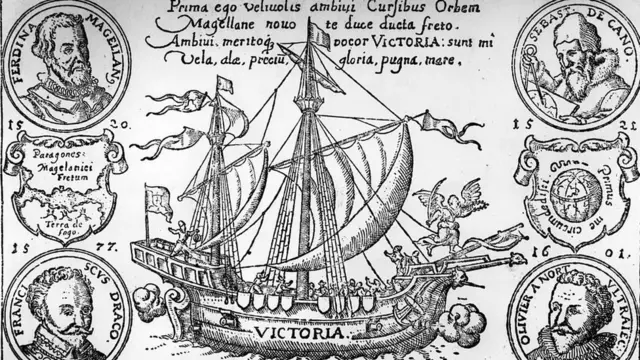 Prima ego veliuolis ambiui Cursibus Orbem
Magellane nouo te duce ducta freto.
Ambiui, meritoq vocor VICTORIA: sunt mi
Vela, alæ, preciū, gloria, pugna, mare.
FERDINA MAGELLANS
SEBAST. DE CANO.
15 20.
15 21
Paragones:
Magelanici
Fretum
Terra de
Fogo.
Primus me circumdedisti
15 77.
16 01.
FRANCISCVS DRACO.
OLIVIER A NOR VLTRAIEC
VICTORIA.